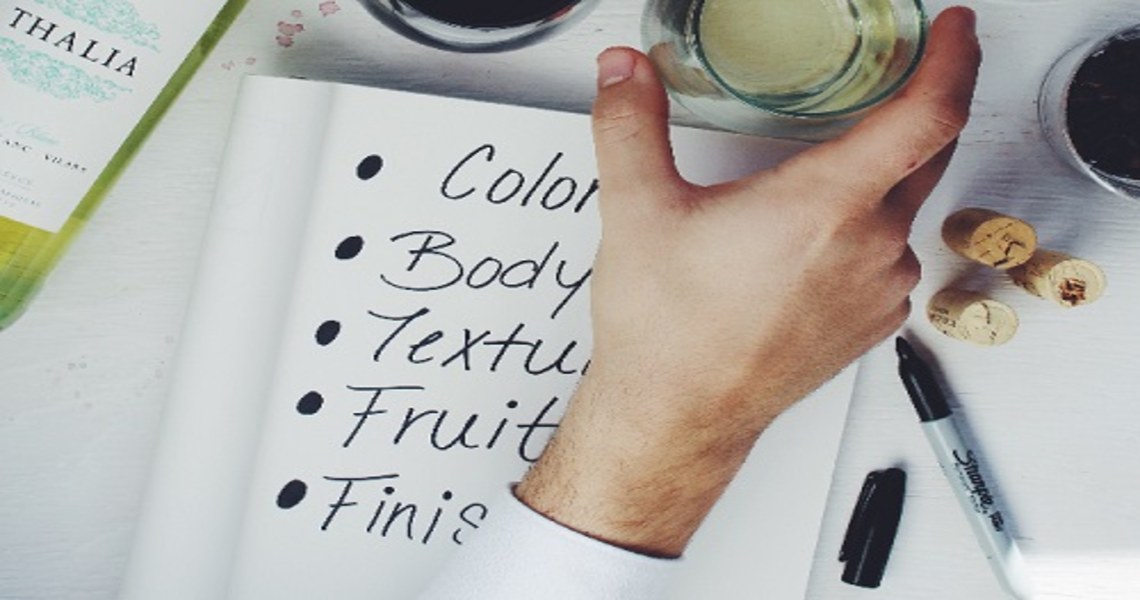 THALIA
Color
Body
Textu
Fruit
Finis
Sharpie